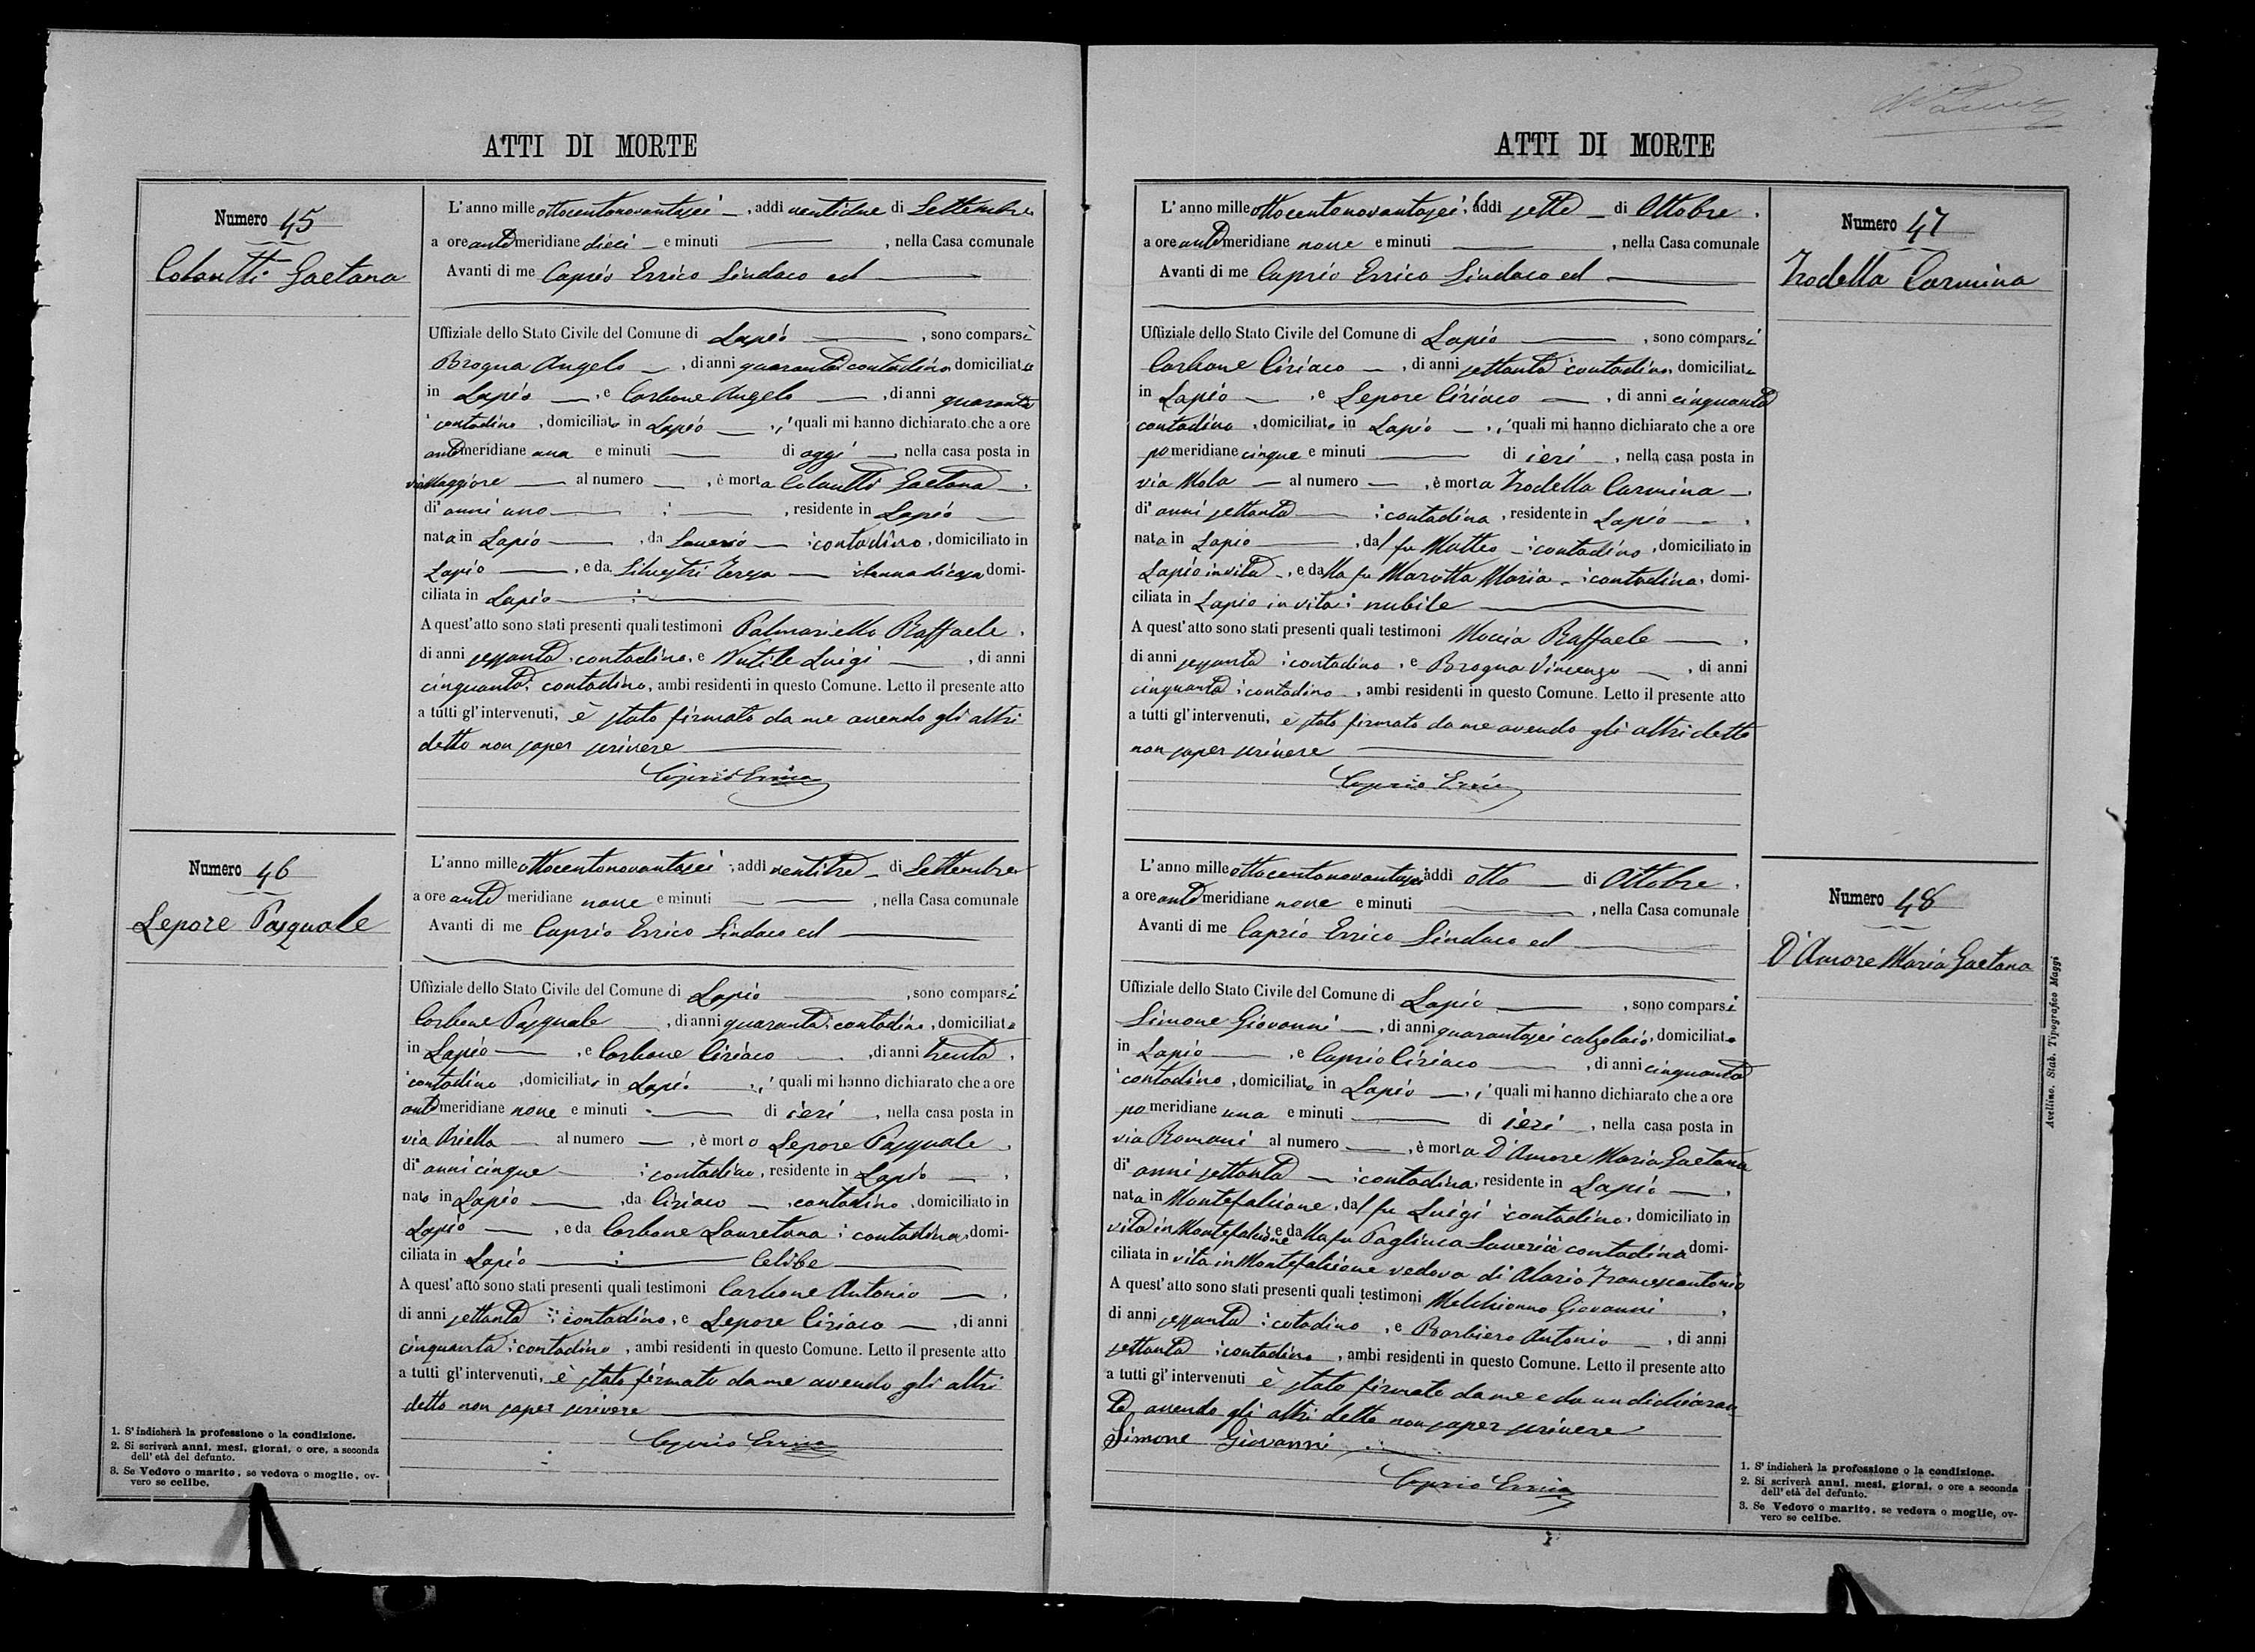 ATTI DI MORTE
Numero 45
Colantti Gaetana
L'anno milleottocentonovantasei, addì ventidue di Settembre
a ore antemeridiane dieci e minuti , nella Casa comunale
Avanti di me Caprio Errico Sindaco ed
Uffiziale dello Stato Civile del Comune di Lapio , sono comparsi
Brogna Angelo , di anni quaranta contadino domiciliato
in Lapio , e Carbone Angelo , di anni quaranta
contadino , domiciliato in Lapio , i quali mi hanno dichiarato che a ore
antemeridiane una e minuti di oggi , nella casa posta in
via Maggiore al numero , è morta Colantti Gaetana
di anni uno ; , residente in Lapio
nata in Lapio , da Saverio ; contadino , domiciliato in
Lapio , e da Silvestri Teresa ; donna di casa domi-
ciliata in Lapio ;
A quest'atto sono stati presenti quali testimoni Palmariello Raffaele ,
di anni sessanta , contadino , e Nutile Luigi , di anni
cinquanta ; contadino , ambi residenti in questo Comune. Letto il presente atto
a tutti gl'intervenuti, è stato firmato da me avendo gli altri
detto non saper scrivere
Caprio Errico
Numero 46
Lepore Pasquale
L'anno milleottocentonovantasei , addì ventitre di Settembre
a ore ante meridiane nove e minuti , nella Casa comunale
Avanti di me Caprio Errico Sindaco ed
Uffiziale dello Stato Civile del Comune di Lapio , sono comparsi
Carbone Pasquale , di anni quaranta ; contadino , domiciliato
in Lapio , e Carbone Ciriaco , di anni trenta ,
contadino , domiciliato in Lapio , i quali mi hanno dichiarato che a ore
antemeridiane nove e minuti di ieri , nella casa posta in
via Ariella al numero , è morto Lepore Pasquale ,
di anni cinque ; contadino , residente in Lapio ,
nato in Lapio , da Ciriaco , contadino , domiciliato in
Lapio , e da Carbone Lauretana ; contadina , domi-
ciliata in Lapio ; Celibe
A quest'atto sono stati presenti quali testimoni Carbone Antonio ,
di anni settanta ; contadino , e Lepore Ciriaco , di anni
cinquanta ; contadino , ambi residenti in questo Comune. Letto il presente atto
a tutti gl'intervenuti, è stato firmato da me avendo gli altri
detto non saper scrivere
Caprio Errico
1. S'indicherà la professione o la condizione.
2. Si scriverà anni, mesi, giorni, o ore, a seconda
dell'età del defunto.
3. Se Vedovo o marito, se vedova o moglie, ov-
vero se celibe.
ATTI DI MORTE
Numero 47
Trodella Carmina
L'anno milleottocentonovantasei, addì sette di Ottobre .
a ore antemeridiane nove e minuti , nella Casa comunale
Avanti di me Caprio Errico Sindaco ed
Uffiziale dello Stato Civile del Comune di Lapio , sono comparsi
Carbone Ciriaco , di anni settanta contadino, domiciliato
in Lapio , e Lepore Ciriaco , di anni cinquanta
contadino , domiciliato in Lapio , i quali mi hanno dichiarato che a ore
pomeridiane cinque e minuti di ieri , nella casa posta in
via Mola al numero , è morta Trodella Carmina ,
di anni settanta ; contadina , residente in Lapio ,
nata in Lapio , dal fu Matteo ; contadino , domiciliato in
Lapio in vita , e dalla fu Marotta Maria ; contadina , domi-
ciliata in Lapio in vita ; nubile
A quest'atto sono stati presenti quali testimoni Moccia Raffaele ,
di anni sessanta ; contadino , e Brogna Vincenzo , di anni
cinquanta ; contadino , ambi residenti in questo Comune. Letto il presente atto
a tutti gl'intervenuti, è stato firmato da me avendo gli altri detto
non saper scrivere
Caprio Errico
Numero 48
D'Amore Maria Gaetana
L'anno milleottocentonovantasei addì otto di Ottobre .
a ore antemeridiane nove e minuti , nella Casa comunale
Avanti di me Caprio Errico Sindaco ed
Uffiziale dello Stato Civile del Comune di Lapio , sono comparsi
Simone Giovanni , di anni quarantasei calzolaio, domiciliato
in Lapio , e Caprio Ciriaco , di anni cinquanta
contadino , domiciliato in Lapio , i quali mi hanno dichiarato che a ore
pomeridiane una e minuti di ieri , nella casa posta in
via Romani al numero , è morta D'Amore Maria Gaetana
di anni settanta ; contadina, residente in Lapio ,
nata in Montefalcione , dal fu Luigi contadino, domiciliato in
vita in Montefalcione e dalla fu Pagliuca Saveria contadina domi-
ciliata in vita in Montefalcione vedova di Alario Francescantonio
A quest'atto sono stati presenti quali testimoni Melchionno Giovanni ,
di anni sessanta ; cotadino , e Barbiero Antonio , di anni
settanta ; contadino , ambi residenti in questo Comune. Letto il presente atto
a tutti gl'intervenuti è stato firmato da me e da un dichiaran
te, avendo gli altri detto non saper scrivere
Simone Giovanni
Caprio Errico
1. S'indicherà la professione o la condizione.
2. Si scriverà anni, mesi, giorni, o ore a seconda
dell'età del defunto.
3. Se Vedovo o marito, se vedova o moglie, ov-
vero se celibe.
Avellino. Stab. Tipografico Maggi